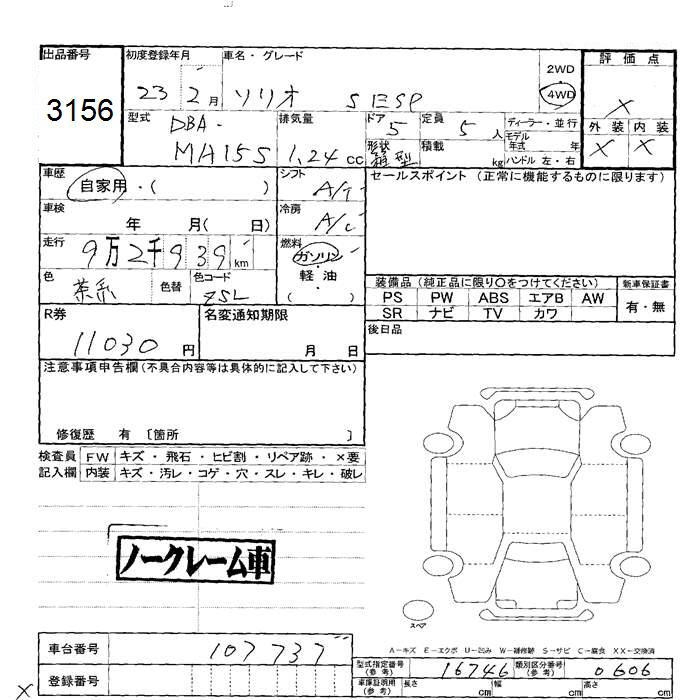 出品番号
3156
初度登録年月
23 2月
車名・グレード
ソリオ S ESP
2WD
4WD
評価点
X
外装 内装
X X
型式
DBA-
MA15S
排気量
1.24 cc
ドア
5
定員
5 人
形状
箱型
積載
kg
ディーラー・並行
モデル年式 年
ハンドル 左・右
車歴
自家用・( )
シフト
A/T
車検
年 月( 日)
冷房
A/C
走行
9万2千939 km
燃料
ガソリン
軽・油
( )
色
茶系
色替
色コード
ZSL
セールスポイント (正常に機能するものに限ります)
装備品(純正品に限り○をつけてください)
PS PW ABS エアB AW
SR ナビ TV カワ
新車保証書
有・無
後日品
R券
11030 円
名変通知期限
月 日
注意事項申告欄(不具合内容等は具体的に記入して下さい)
修復歴 有 〔箇所 〕
検査員記入欄
FW キズ・飛石・ヒビ割・リペア跡・×要
内装 キズ・汚レ・コゲ・穴・スレ・キレ・破レ
ノークレーム車
スペア
A-キズ E-エクボ U-凹み W-補修跡 S-サビ C-腐食 XX-交換済
車台番号
107737
登録番号
型式指定番号(参考)
16746
類別区分番号(参考)
0606
車庫証明用(参考)
長さ cm 幅 cm 高さ cm
X